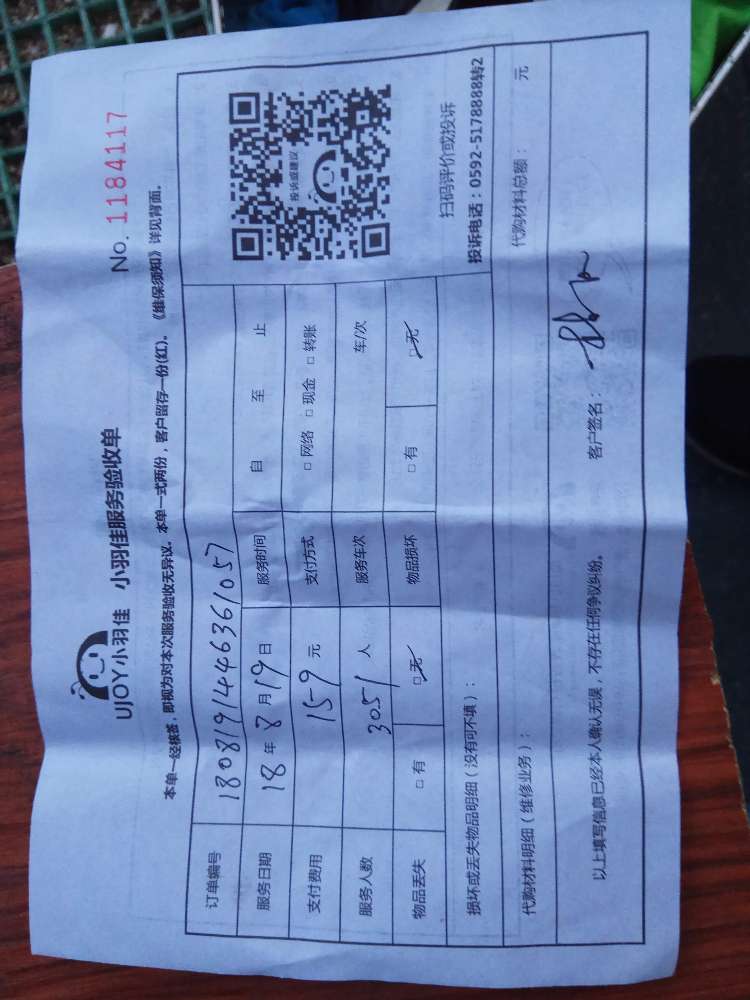 UJOY小羽佳 小羽佳服务验收单
No. 1184117
本单一经核签，即视为对本次服务验收无异议。本单一式两份，客户留存一份(红)。《维保须知》详见背面。
订单编号 1808191446361057
服务日期 18年8月19日 服务时间 自 至 止
支付费用 159元 支付方式 □ 网络 □ 现金 □ 转账
服务人数 3051人 服务车次 车/次
物品丢失 □ 有 □ 无 物品损坏 □ 有 □ 无
投诉或建议
扫码评价或投诉
投诉电话：0592-5178888转2
损坏或丢失物品明细（没有可不填）：
代购材料明细（维修业务）： 代购材料总额： 元
以上填写信息已经本人确认无误，不存在任何争议纠纷。 客户签名：